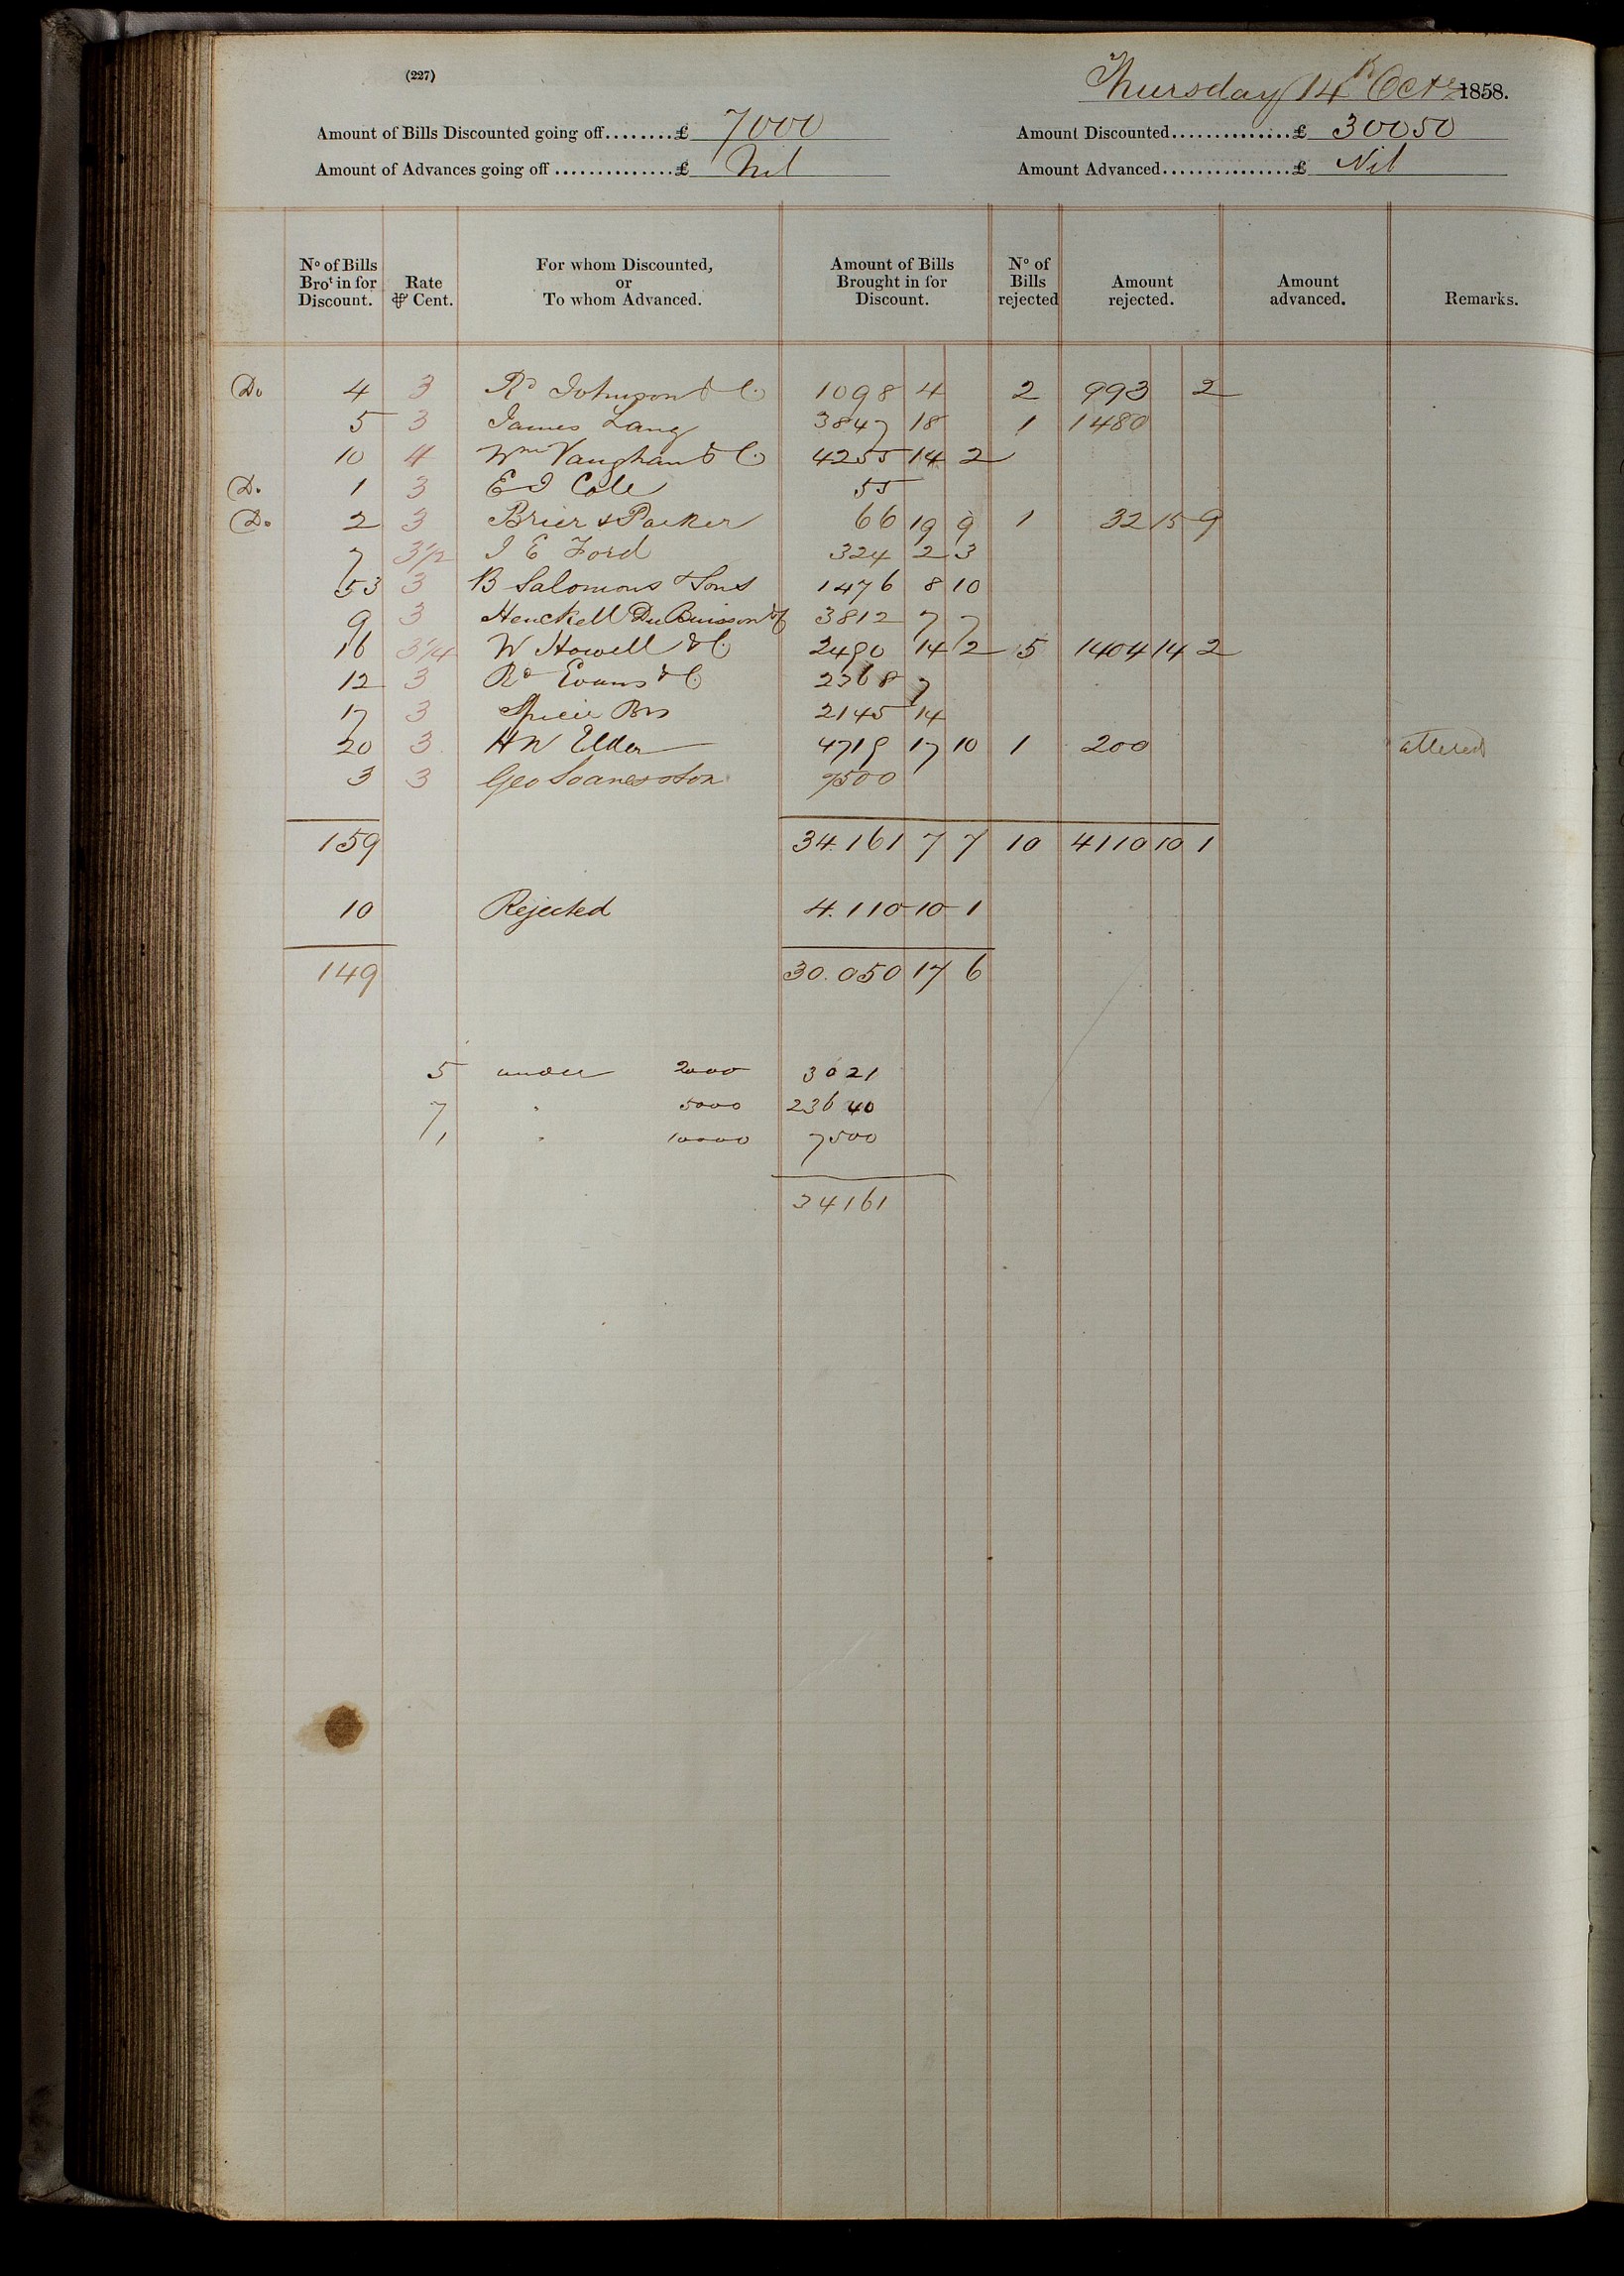 (227)
Thursday 14th Octr 1858.
Amount of Bills Discounted going off........£ 7000 Amount Discounted..............£ 30050
Amount of Advances going off ..............£ Nil Amount Advanced...............£ Nil
No of Bills Brot in for Discount. Rate ⅌ Cent. For whom Discounted, or To whom Advanced. Amount of Bills Brought in for Discount. No of Bills rejected Amount rejected. Amount advanced. Remarks.
Do 4 3 Rd Johnson & Co 1098 4 2 993 2
5 3 James Lang 3847 18 1 1480
10 4 Wm Vaughan & Co 4255 14 2
Do 1 3 E J Cole 55
Do 2 3 Brier & Packer 66 19 9 1 32 15 9
7 3 1/2 J E Ford 324 2 3
53 3 B Salomons & Sons 1476 8 10
9 3 Henckell Du Buisson & Co 3812 7 7
16 3 1/4 W Howell & Co 2490 14 2 5 1404 14 2
12 3 Rd Evans & Co 2368 7
17 3 Spicer Bros 2145 14
20 3 H W Elder 4719 17 10 1 200 altered
3 3 Geo Soanes & Son 7500
159 34.161 7 7 10 4110 10 1
10 Rejected 4.110 10 1
149 30.050 17 6
5 under 2000 3021
7 " 5000 23640
1 " 10000 7500
34161